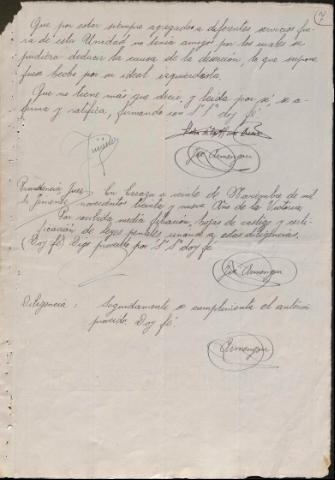 7
Que por estar siempre agregado a diferentes servicios fue-
ra de esta Unidad no tenia amigos por los cuales se
pudiera deducir la causa de la desercion, lo que supone
fuera hecho por su ideal izquierdista.
Que no tiene más que decir, y leida por sí, se a-
firma y ratifica, firmando con S.S. doy fé
Providencia Juez En Zaragoza a veinte de Noviembre de mil
novecientos treinta y nueve Año de la Victoria
Por recibida media filiación, hojas de castigo y certi-
ficación de leyes penales unanse a estas diligencias.
(Doy fé) Digo proveido por S.S. doy fé
Diligencia: Seguidamente se cumplimenta el anterior
proveido Doy fé
Armengou